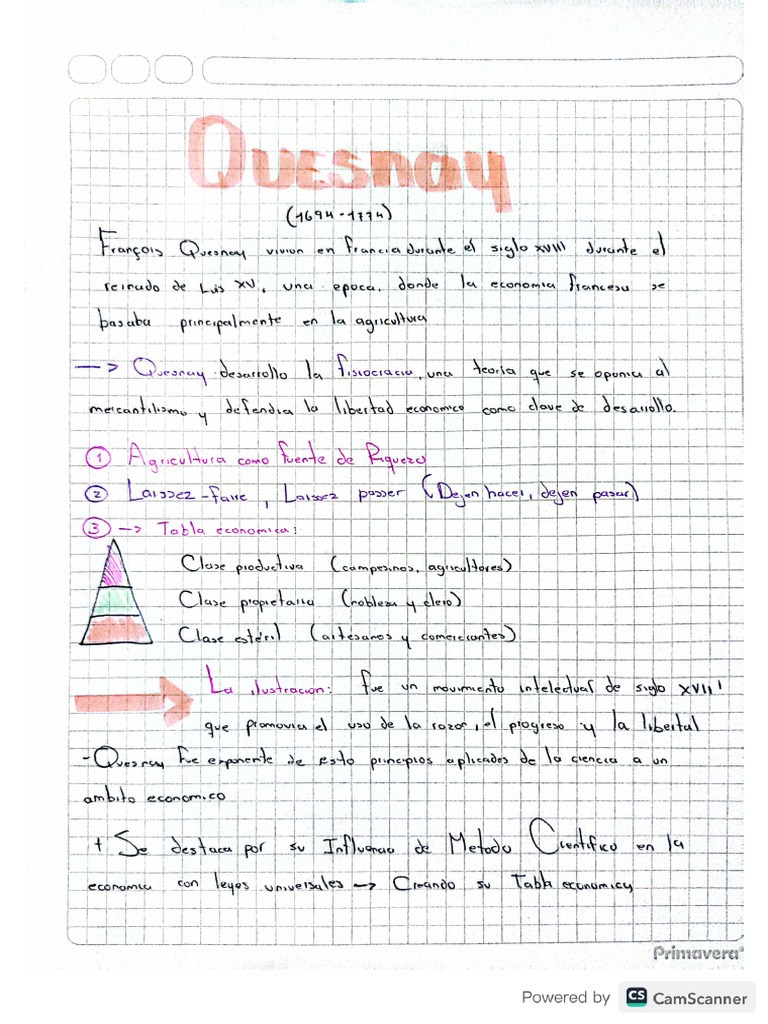 Quesnay
(1694-1774)
François Quesnay vivion en francia durante el siglo XVIII durante el
reinado de Luis XV, una epoca. donde la economia francesa se
basaba principalmente en la agricultura
—> Quesnay desarrollo la fisiocracia, una teoria que se oponia al
mercantilismo y defendia la libertad economico como clave de desarollo.
1 Agricultura como fuente de Riqueza
2 Laissez-faire, Laissez passer (Dejen hacer, dejen pasar)
3 —> Tabla economica:
Clase productiva (campesinos, agricultores)
Clase propietaria (nobleza y clero)
Clase estéril (artesanos y comerciantes)
La ilustracion: fue un movimiento intelectual de siglo XVIII
que promovia el uso de la razon, el progreso y la libertal
- Quesnay fue exponente de esto principios aplicados de la ciencia a un
ambito economico
+ Se destaca por su Influencia de Metodo Cientifico en la
economia con leyes universales —> Creando su Tabla economica
Primavera
Powered by CS CamScanner